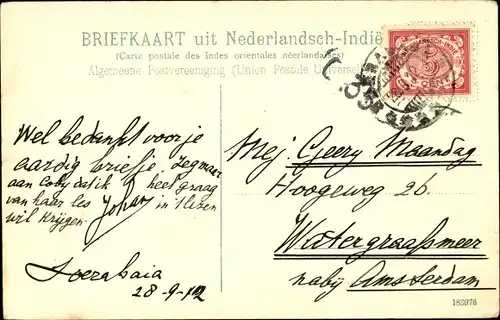 BRIEFKAART uit Nederlandsch-Indië
(Carte postale des Indes orientales néerlandaises)
Algemeene Postvereeniging (Union Postale Universelle)
5
CENT
Wel bedankt voor je
aardig briefje zeg maar
aan Coby dat ik heel graag
van haar les Johan in 't lezen
wil krijgen.
Soerabaia
28-9-12
Mej. Geery Maandag
Hoogeweg 26
Watergraafsmeer
nabij Amsterdam
183976